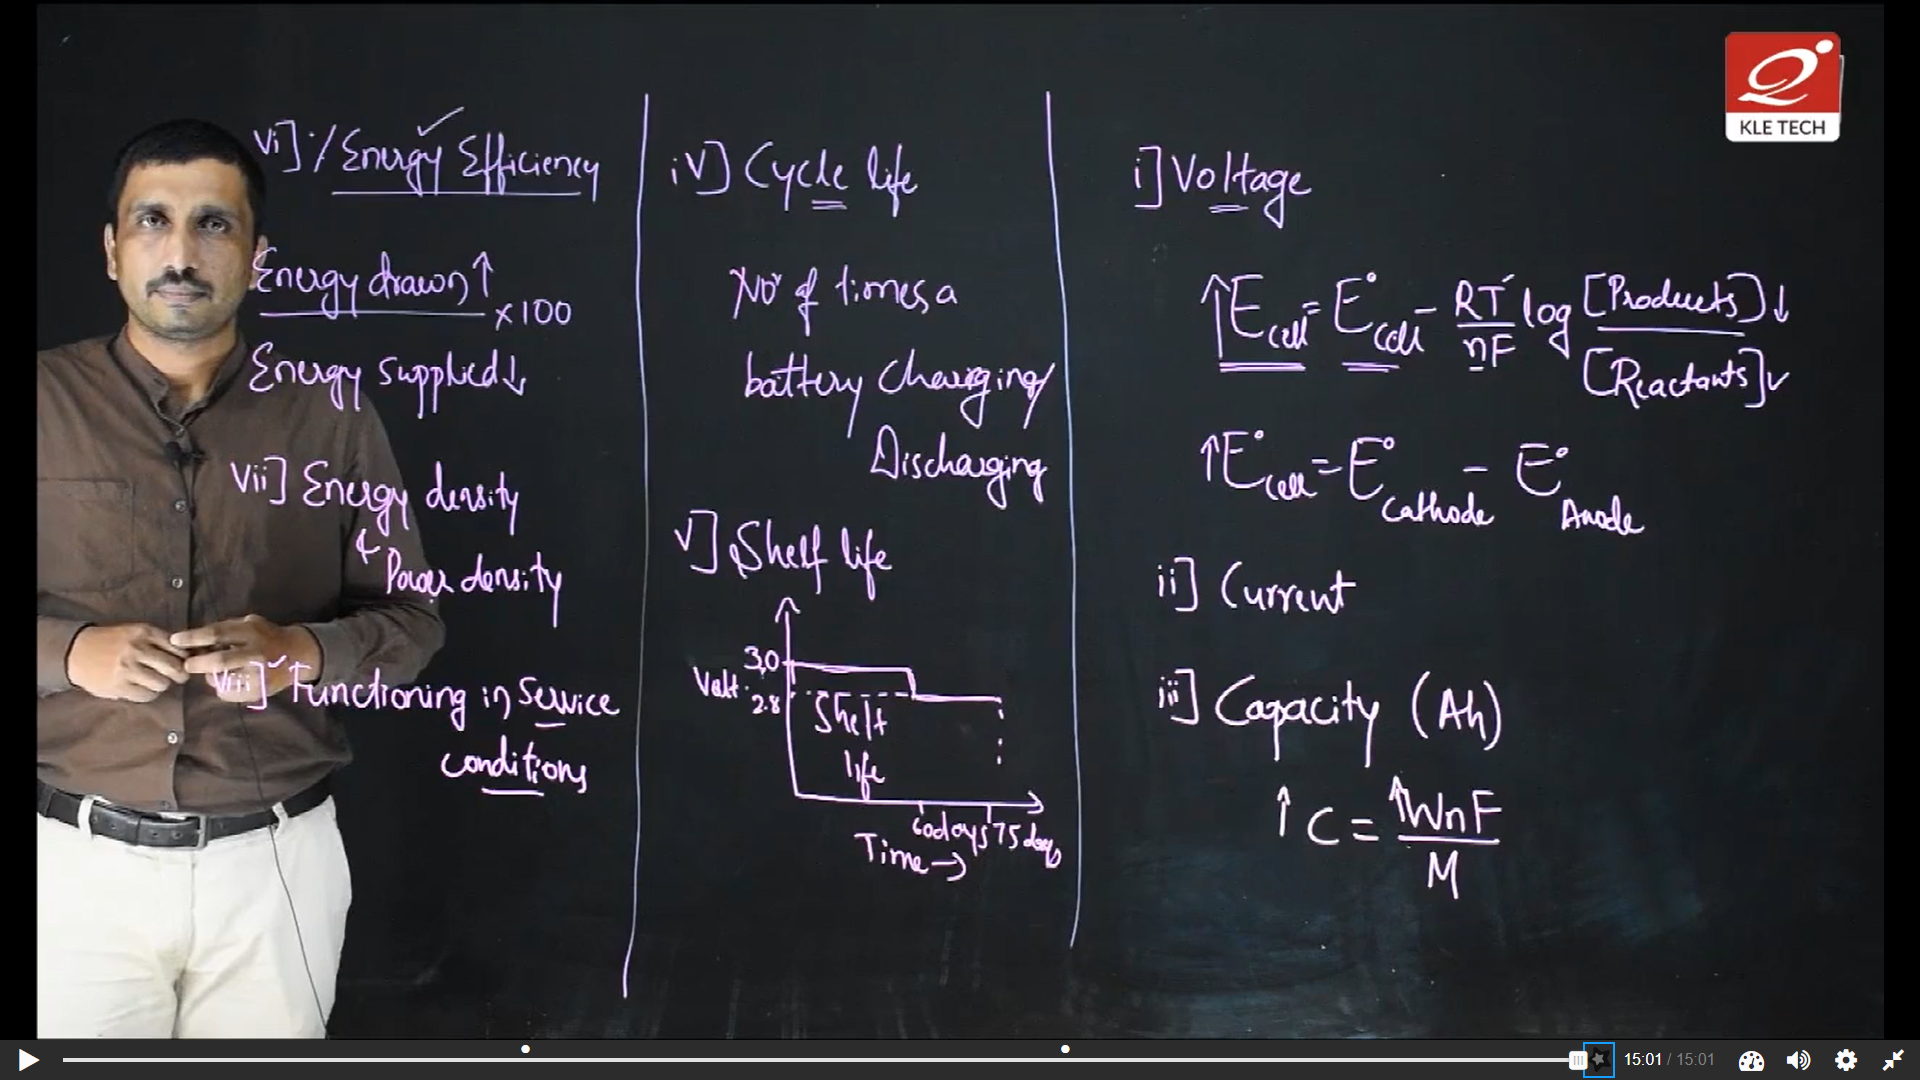 vi] % Energy Efficiency
Energy drawn ↑
× 100
Energy supplied ↓
vii] Energy density
& Power density
viii] Functioning in Service
conditions
iv] Cycle life
No of times a
battery Charging/
Discharging
v] Shelf life
3.0
Volt
2.8
Shelf
life
60days 75 days
Time →
i] Voltage
↑E cell = E° cell - RT/nF log [Products]↓ / [Reactants]
↑E° cell = E° Cathode - E° Anode
ii] Current
iii] Capacity (Ah)
↑ C = ↑WnF / M
KLE TECH
15:01 / 15:01